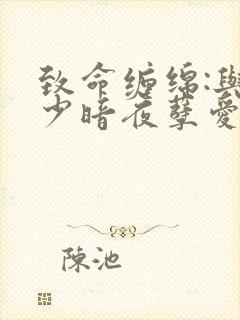 致命缠绵:與
少暗夜孽爱
陳池